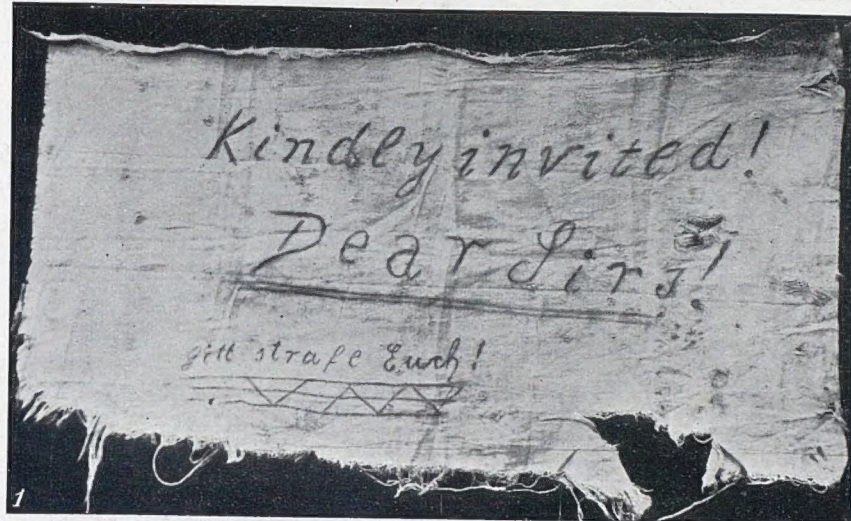 Kindly invited!
Dear Sirs!
Gott strafe Euch!
1